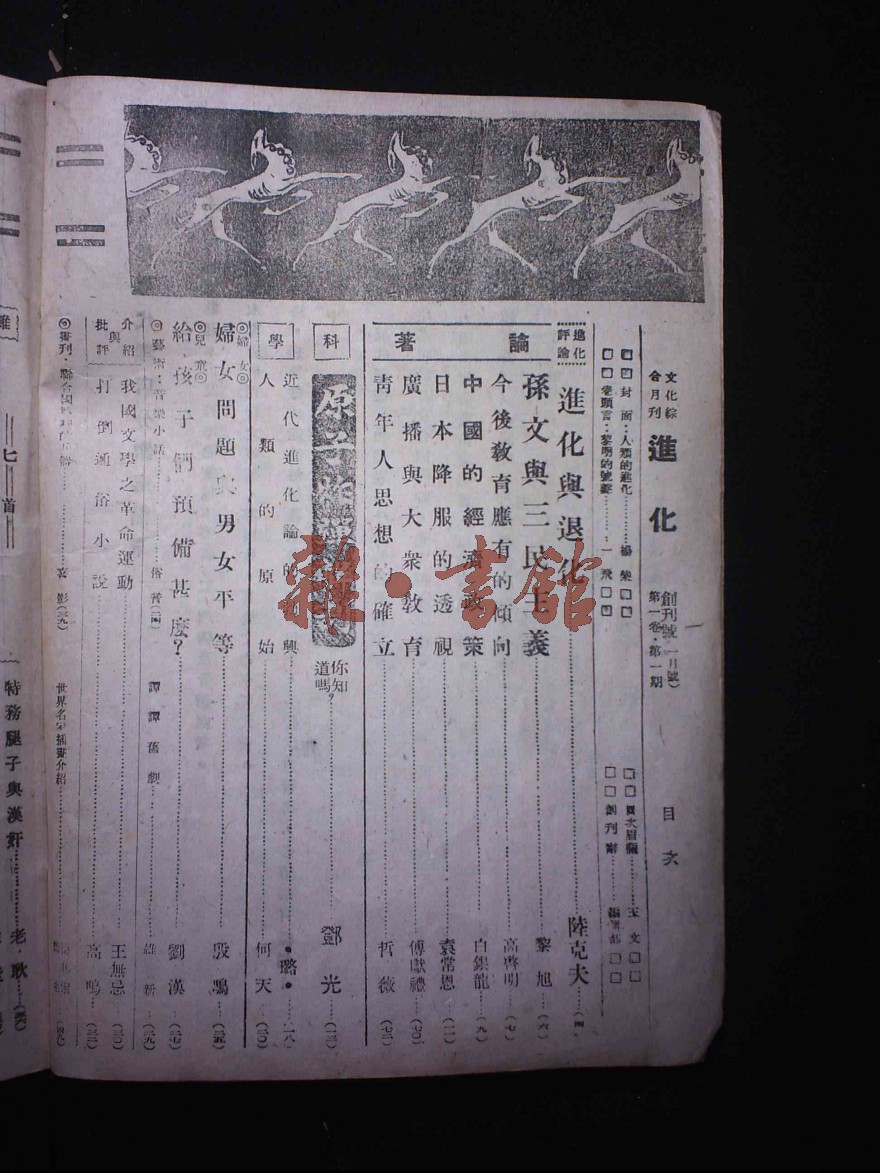 文化綜合月刊 進化 創刊號(一月號) 第一卷・第一期 目次
封面：人類的進化……楊榮
目次眉題……王文
卷頭言：黎明的號聲……一飛
創刊辭……編輯部
進化評論 進化與退化……陸克夫……(四)
論著
孫文與三民主義……黎旭……(六)
今後教育應有的傾向……高啓明……(七)
中國的經濟政策……白銀龍……(九)
日本降服的透視……袁常恩……(一一)
廣播與大衆教育……傅獻禮……(七〇)
青年人思想的確立……哲薇……(七二)
科學
你知道嗎？……鄧光……(一三)
近代進化論的 興……・璐・……(一八)
人類的原始……何天……(二〇)
◎婦女◎
婦女問題與男女平等……殷鳴……(二五)
◎兒童◎
給孩子們預備甚麼？……劉漢……(二七)
◎藝術：音樂小話……俗音(二四)
譚譚舊劇……維新……(二九)
介紹與批評
我國文學之革命運動……王無忌……(三〇)
打倒通俗小說……高鳴……(三二)
世界名家插畫介紹
七首
特務腿子與漢奸……老・耿……
雜・書館